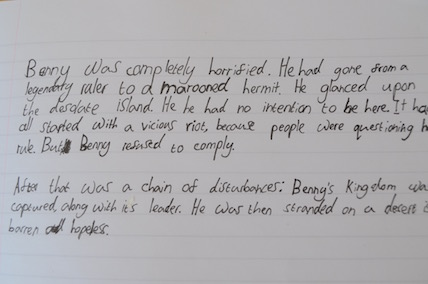 Benny was completely horrified. He had gone from a
legendary ruler to a marooned hermit. He glanced upon
the desolate island. He he had no intention to be here. It ha
all started with a vicious riot, because people were questioning h
rule. But Benny refused to comply.
After that was a chain of disturbances: Benny's Kingdom wa
captured, along with it's leader. He was then stranded on a desert
barren hopeless.